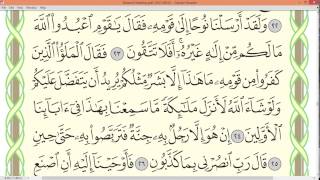 ٢٢ وَلَقَدْ أَرْسَلْنَا نُوحًا إِلَىٰ قَوْمِهِ فَقَالَ يَاقَوْمِ اعْبُدُوا اللَّهَ
مَا لَكُم مِّنْ إِلَٰهٍ غَيْرُهُ أَفَلَا تَتَّقُونَ ٢٣ فَقَالَ الْمَلَأُ الَّذِينَ
كَفَرُوا مِن قَوْمِهِ مَا هَٰذَا إِلَّا بَشَرٌ مِّثْلُكُمْ يُرِيدُ أَن يَتَفَضَّلَ عَلَيْكُمْ
وَلَوْ شَاءَ اللَّهُ لَأَنزَلَ مَلَائِكَةً مَّا سَمِعْنَا بِهَٰذَا فِي آبَائِنَا
الْأَوَّلِينَ ٢٤ إِنْ هُوَ إِلَّا رَجُلٌ بِهِ جِنَّةٌ فَتَرَبَّصُوا بِهِ حَتَّىٰ حِينٍ
٢٥ قَالَ رَبِّ انصُرْنِي بِمَا كَذَّبُونِ ٢٦ فَأَوْحَيْنَا إِلَيْهِ أَنِ اصْنَعِ